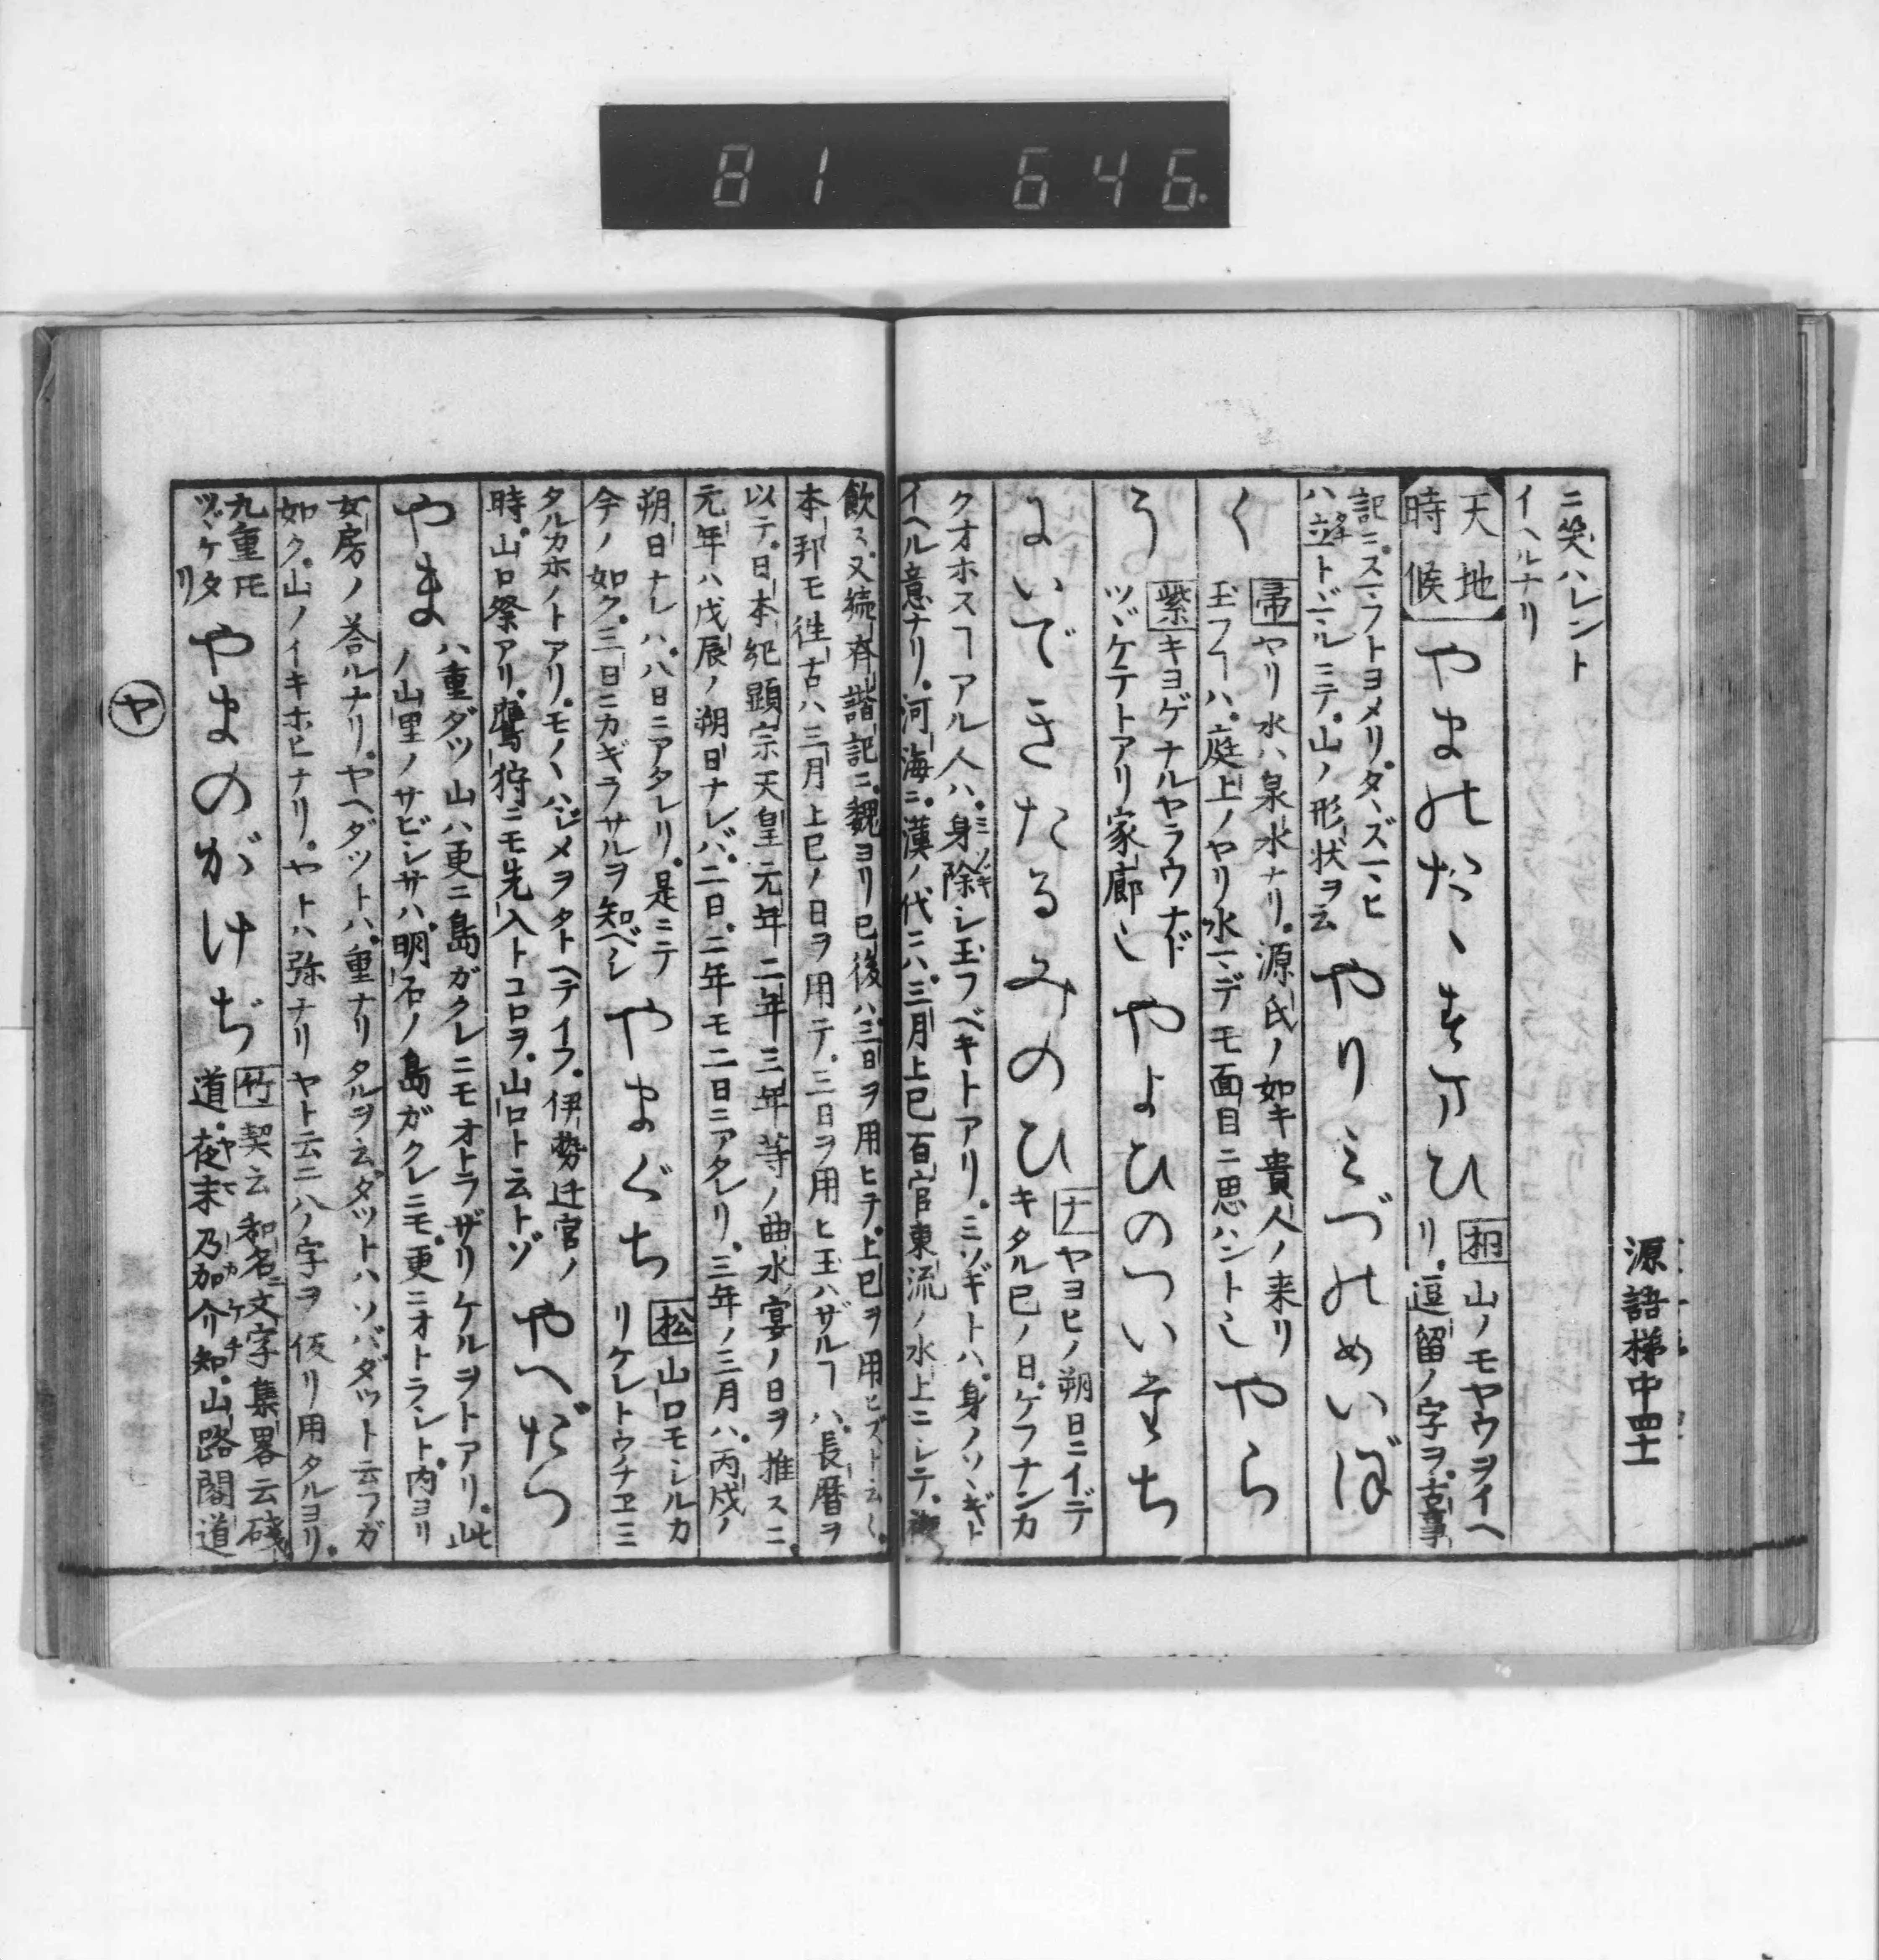 81 646.
源語梯中四十
ニ笑ハレント
イヘルナリ
天地
時候
やまのたゝずまひ
桐
山ノモヤウヲイヘ
リ。逗留ノ字ヲ。古事
記ニ。スマフトヨメリ。タヽズマヒ
ハ立トヾマルニテ。山ノ形状ヲ云
やりみづのめいぼ
く
帚
ヤリ水ハ泉水ナリ。源氏ノ如キ貴人ノ来リ
玉フハ。庭上ノヤリ水マデモ面目ニ思ハント也
やら
う
紫
キヨゲナルヤラウナド
ツヾケテトアリ家廊也
やよひのついたち
にいできたるみのひ
ナ
ヤヨヒノ朔日ニイデ
キタル巳ノ日。ケフナンカ
クオホスコアル人ハ。身除シ玉フベキトアリ。ミソギトハ。身ノソヽギト
イヘル意ナリ。河海ニ。漢ノ代ニハ。三月上巳百官東流ノ水上ニシテ。禊
飲ス又続斉諧記ニ。魏ヨリ已後ハ。三日ヲ用ヒテ。上巳ヲ用ヒズト云々。
本邦モ往古ハ三月上巳ノ日ヲ用テ。三日ヲ用ヒ玉ハザルコハ。長暦ヲ
以テ。日本紀顕宗天皇元年二年三年等ノ曲水宴ノ日ヲ推スニ。
元年ハ戊辰ノ朔日ナレバ。二日。二年モ二日ニアタレリ。三年ノ三月ハ。丙戌ノ
朔日ナレハ。八日ニアタレリ。是ニテ
今ノ如ク。三日ニカギラサルヲ知ベシ
やまぐち
松
山口モシルカ
リケレトウチヱミ
タルカホノトアリ。モノヽハジメヲタトヘテイフ。伊勢迁宮ノ
時。山口祭アリ。鷹狩ニモ先入トコロヲ。山口ト云トゾ
やへだつ
やま
八重ダツ山ハ更ニ島ガクレニモオトラザリケルヲトアリ。此
ノ山里ノサビシサハ。明石ノ島ガクレニモ。更ニオトラシト。内ヨリ
女房ノ荅ルナリ。ヤヘダツトハ。重ナリタルヲ云。ダツトハソバダツト云フガ
如ク。山ノイキホヒナリ。ヤトハ弥ナリヤト云ニ八ノ字ヲ仮リ用タルヨリ。
九重氏
ツヾケタリ
やまのがけぢ
竹
契云和名ニ文字集畧云磴
道。夜末乃加介知。山路閣道
ヤ